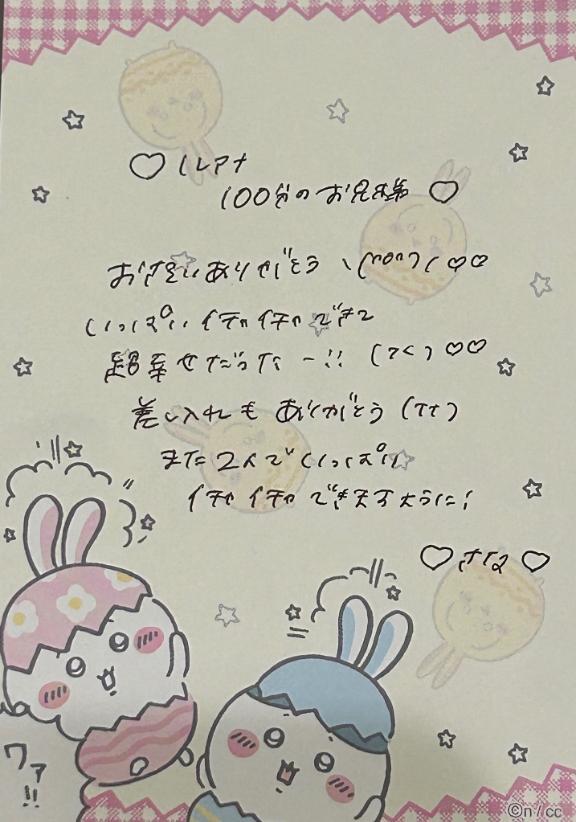 ♡ルアナ
100分のお兄様♡
お誘いありがとう
いっぱいイチャイチャできて
超幸せだったー!!
差し入れもありがとう
また2人でいっぱい
イチャイチャできますように!
ワァ
!!
©n/cc